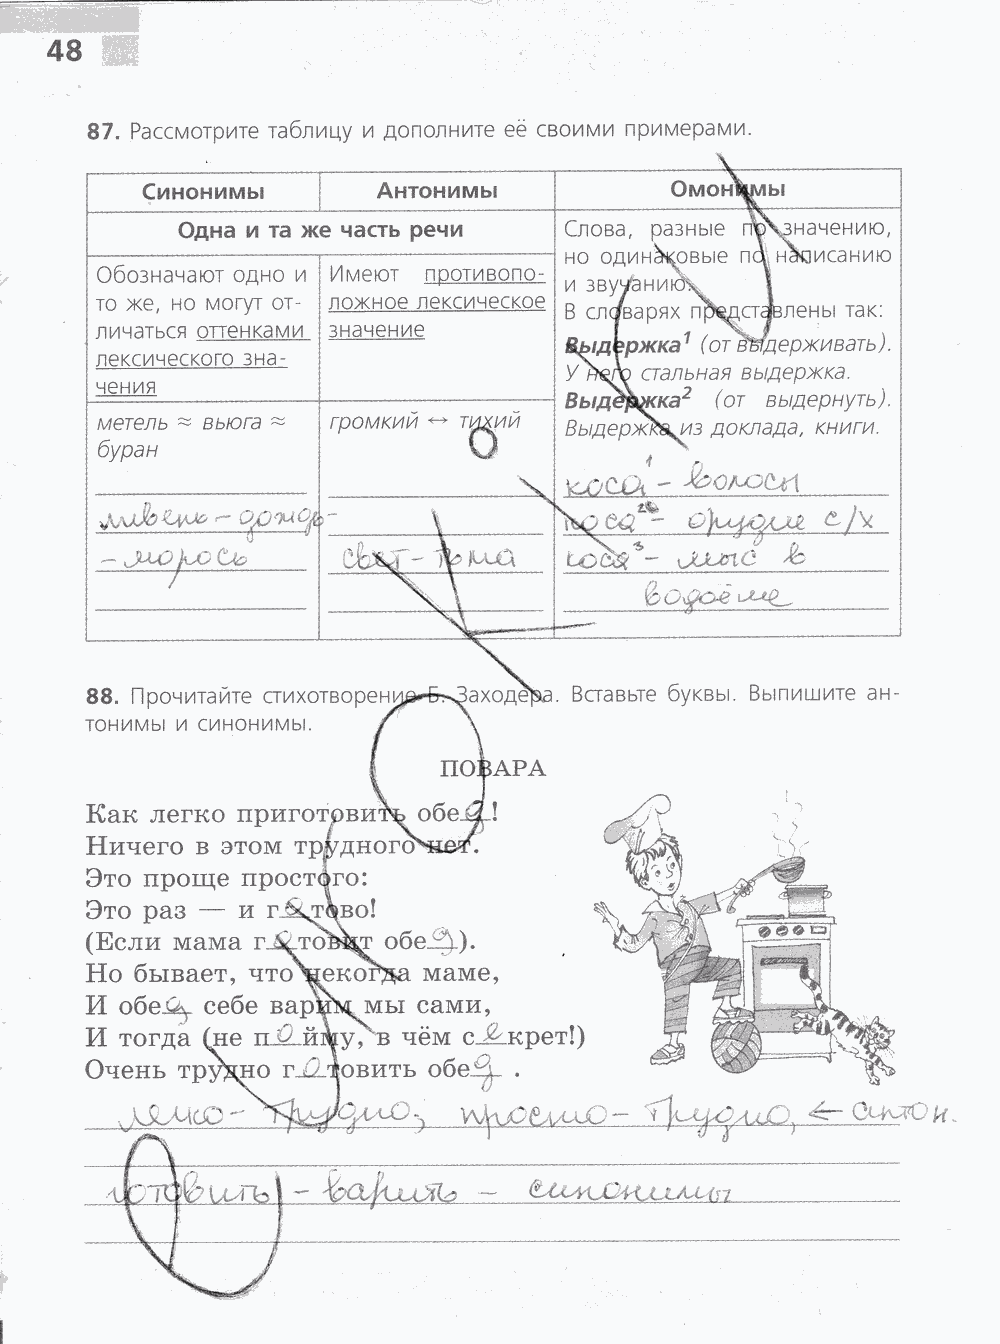 48
87. Рассмотрите таблицу и дополните её своими примерами.
Синонимы Антонимы Омонимы
Одна и та же часть речи
Обозначают одно и
то же, но могут от-
личаться оттенками
лексического зна-
чения
Имеют противопо-
ложное лексическое
значение
Слова, разные по значению,
но одинаковые по написанию
и звучанию.
В словарях представлены так:
Выдержка¹ (от выдерживать).
У него стальная выдержка.
Выдержка² (от выдернуть).
Выдержка из доклада, книги.
метель ≈ вьюга ≈
буран
ливень – дождь –
– морось
громкий ↔ тихий
свет – тьма
коса¹ – волосы
коса² – орудие с/х
коса³ – мыс в
водоёме
88. Прочитайте стихотворение Б. Заходера. Вставьте буквы. Выпишите ан-
тонимы и синонимы.
ПОВАРА
Как легко приготовить обед!
Ничего в этом трудного нет.
Это проще простого:
Это раз — и готово!
(Если мама готовит обед).
Но бывает, что некогда маме,
И обед себе варим мы сами,
И тогда (не пойму, в чём секрет!)
Очень трудно готовить обед .
легко – трудно; просто – трудно, ← антон.
готовить – варить – синонимы